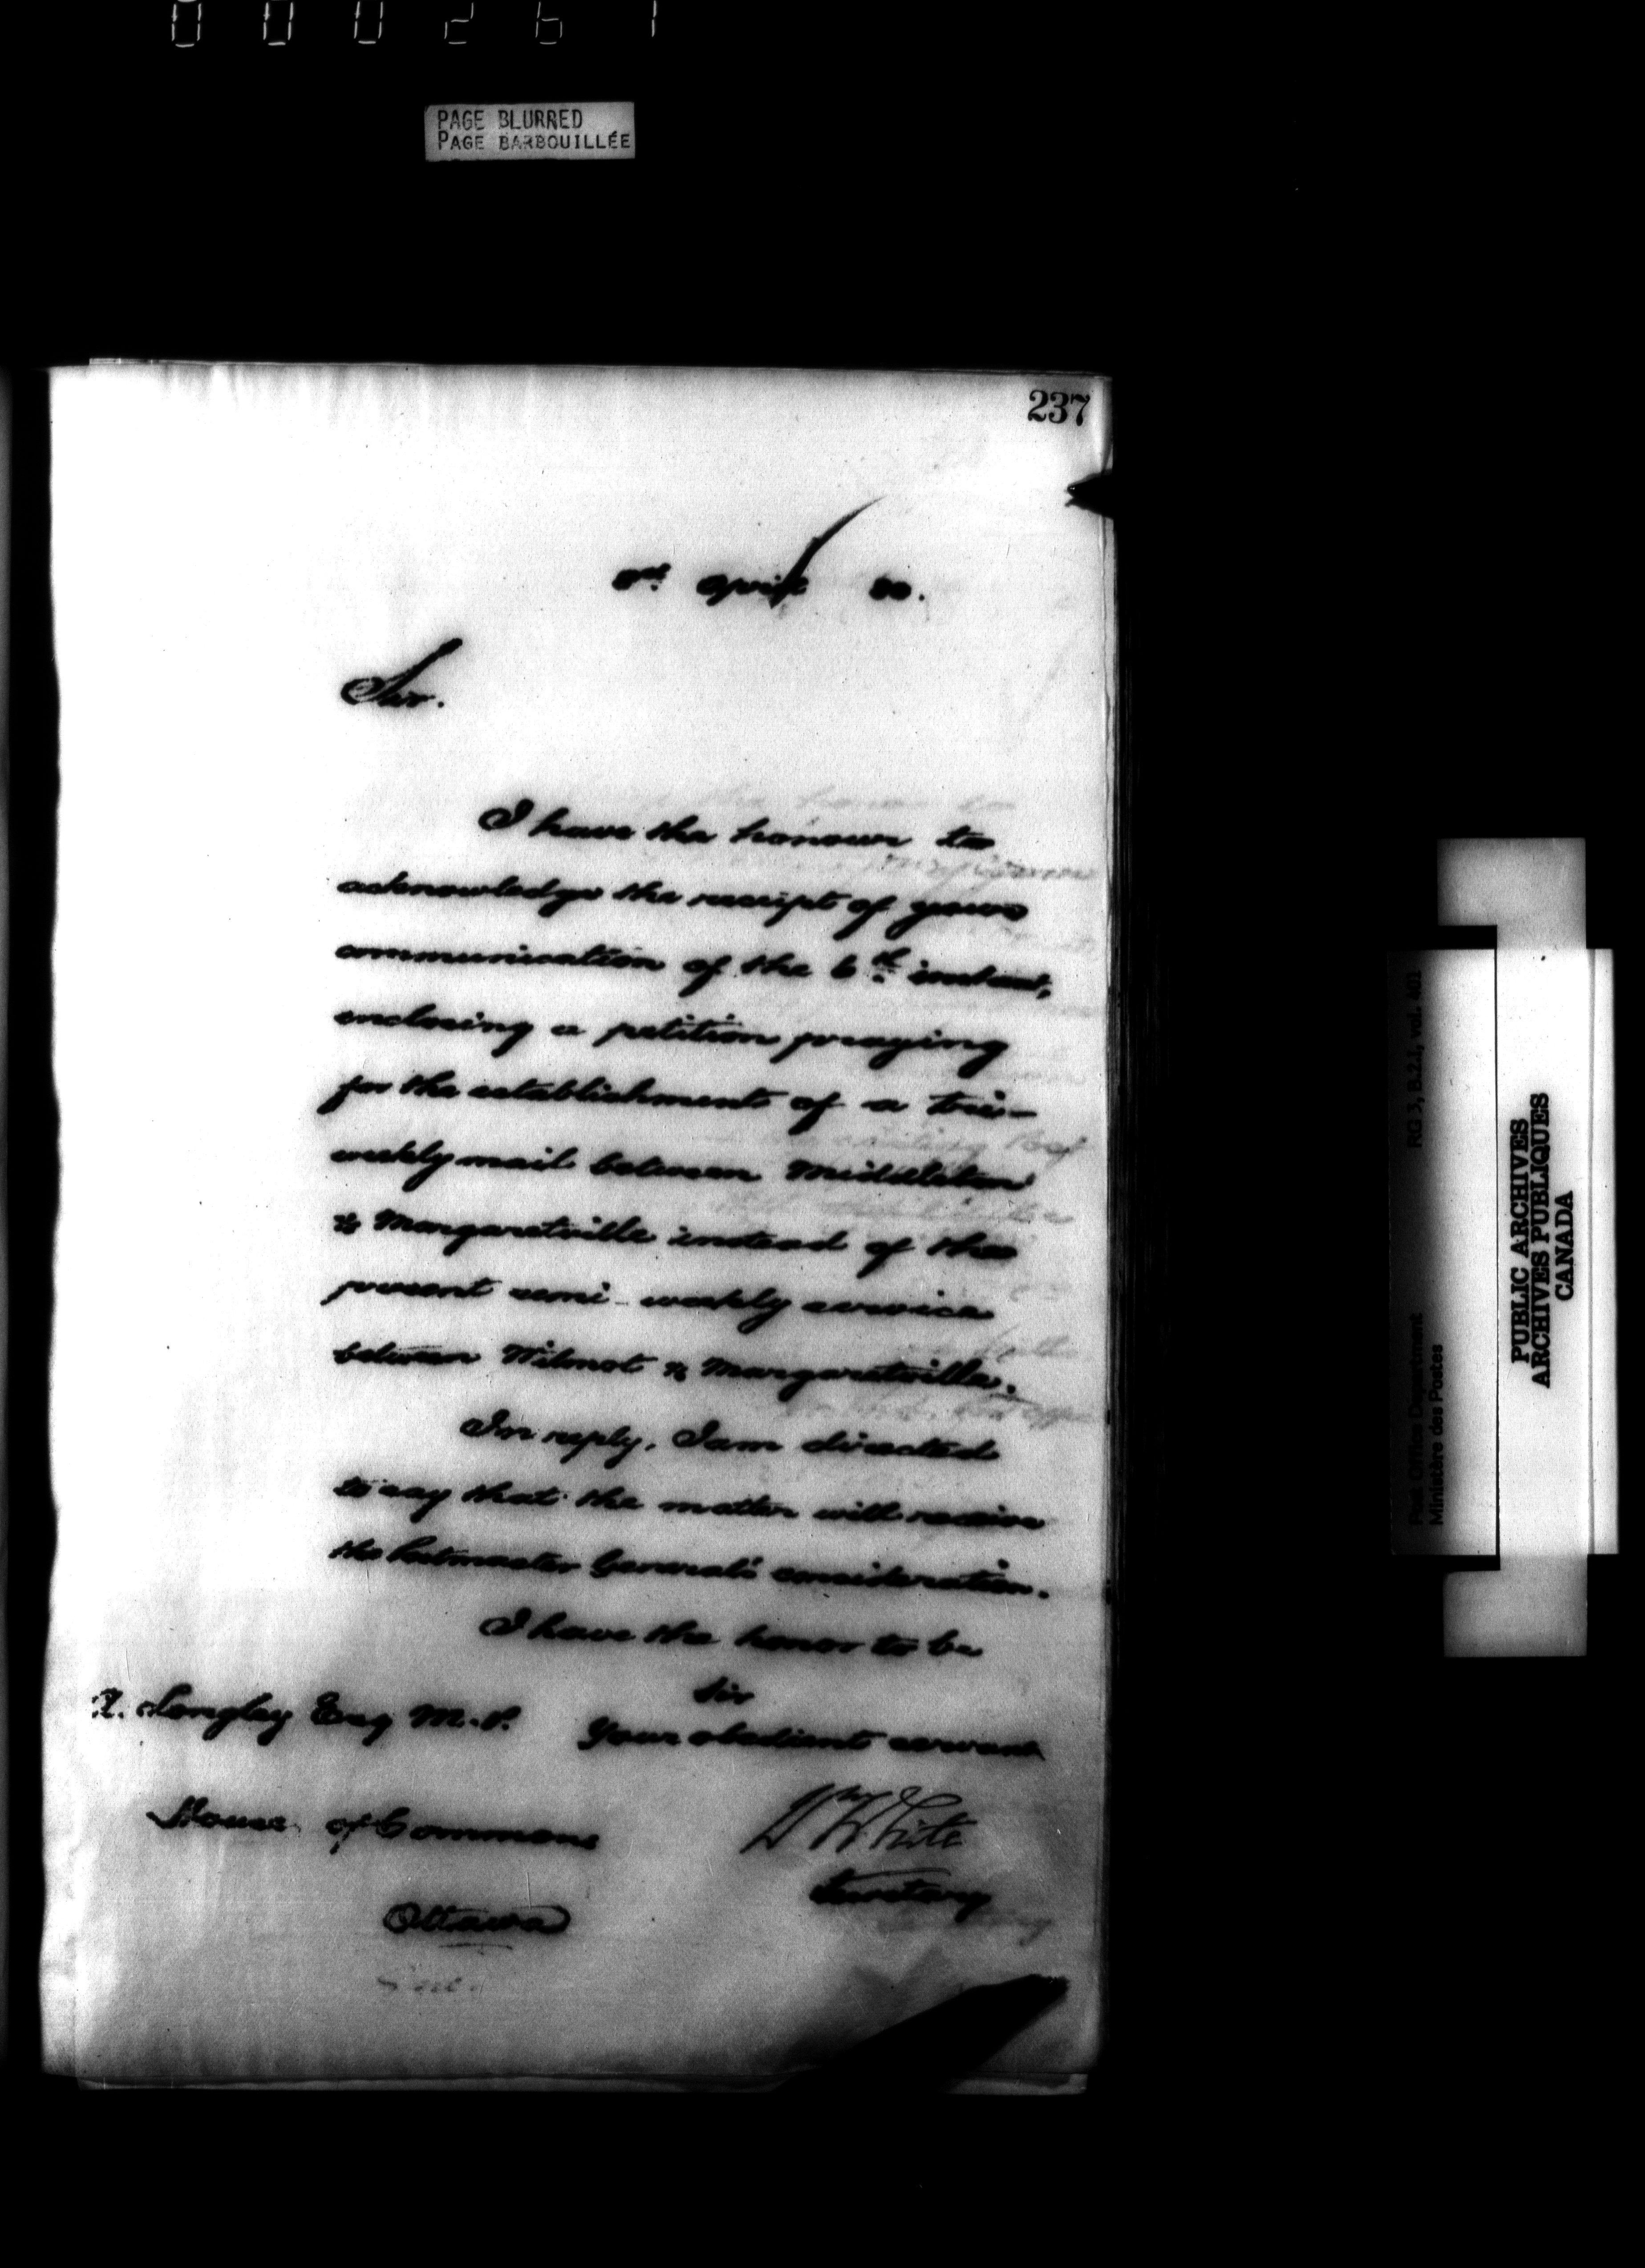 000261
PAGE BLURRED
PAGE BARBOUILLÉE
237
April 80.
Sir.
I have the honour to
acknowledge the receipt of your
communication of the 6th instant,
enclosing a petition praying
for the establishment of a tri-
weekly mail between Middleton
& Margaretville instead of the
present semi-weekly service
between Wilmot & Margaretville.
In reply, I am directed
to say that the matter will receive
the Postmaster General's consideration.
I have the honor to be
Sir
Your obedient servant
Longley Esq M.P.
House of Commons
Ottawa
Wm White
Secretary
RG 3, B.2.1, vol. 401
Post Office Department
Ministère des Postes
PUBLIC ARCHIVES
ARCHIVES PUBLIQUES
CANADA